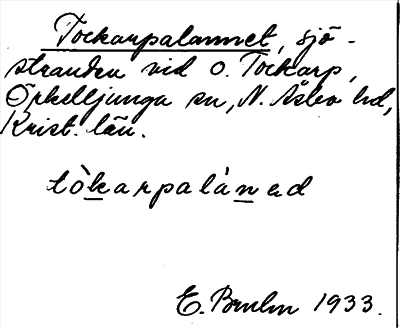 Tockarpalannet, sjö-
stranden vid O. Tockarp,
Örkelljunga sn, N. Åsbo hd,
Krist. län.
tòkarpalàned
E. Bruhn 1933.